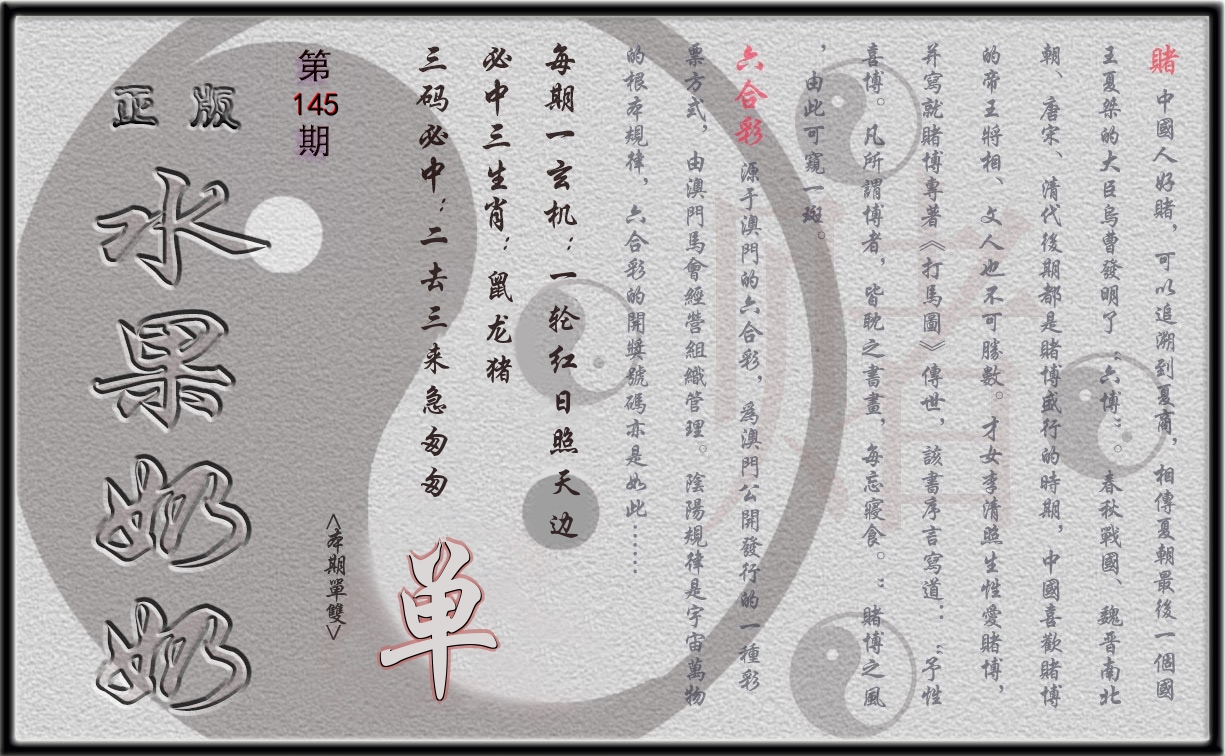 賭 中國人好賭，可以追溯到夏商，相傳夏朝最後一個國
王夏桀的大臣烏曹發明了“六博”。春秋戰國、魏晋南北
朝、唐宋、清代後期都是賭博盛行的時期，中國喜歡賭博
的帝王將相、文人也不可勝數。才女李清照生性愛賭博，
并寫就賭博專著《打馬圖》傳世，該書序言寫道：“予性
喜博。凡所謂博者，皆耽之書畫，每忘寢食。”賭博之風
，由此可窺一斑。
六合彩 源于澳門的六合彩，爲澳門公開發行的一種彩
票方式，由澳門馬會經營組織管理。陰陽規律是宇宙萬物
的根本規律，六合彩的開獎號碼亦是如此……
每期一玄机：一轮红日照天边
必中三生肖：鼠龙猪
三码必中：二去三来急匆匆
单
<本期單雙>
第
145
期
正版
水果奶奶
賭